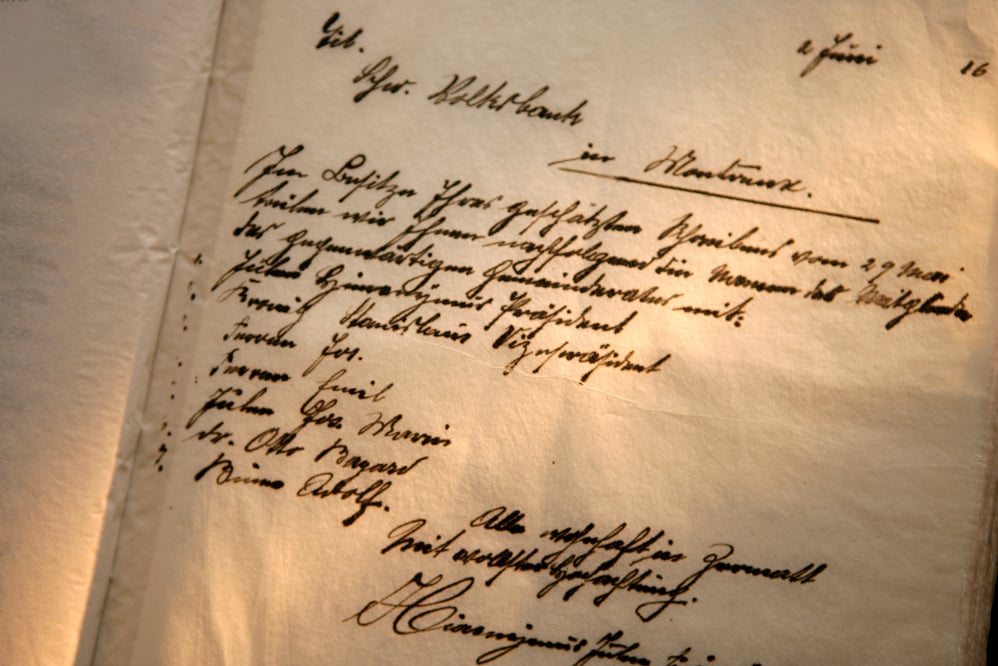 Tit.
2 Juni 16
Schw. Volksbank
in Montreux.
Im Besitze Ihres geschätzten Schreibens vom 29 Mai
teilen wir Ihnen nachfolgend die Namen der Mitglieder
des gegenwärtigen Gemeinderates mit:
Julen Hieronymus Präsident
Stanislaus Vizepräsident
Perren Jos.
Perren Emil
Julen Jos. Marie
dr. Otto
Biner Adolf.
Alle wohnhaft in Zermatt
Mit vollster Hochachtung.
Hieronymus Julen